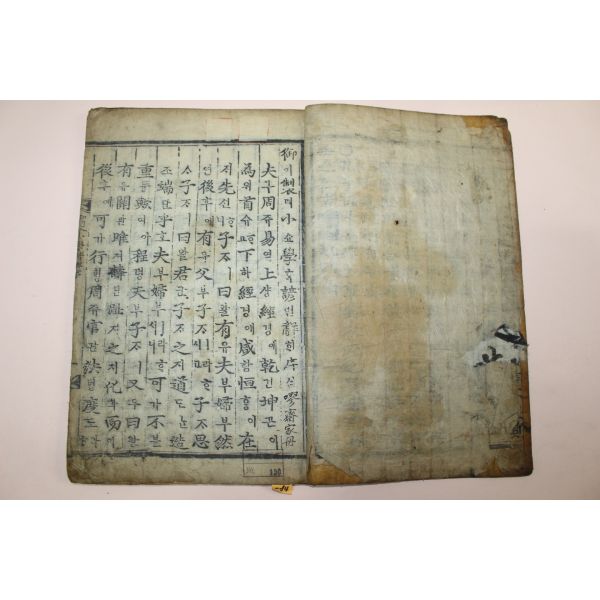 御어製뎨小쇼學ᄒᆞᆨ諺언解ᄒᆡ序셔 齋家冊
夫부周쥬易역上샹經경에乾건坤곤이
為위首슈ᄒᆞ고下하經경에咸함恒ᄒᆞᆼ이在
ᄌᆡ先션ᄒᆞ니子ᄌᆞㅣ曰왈有유夫부婦부然
연後후에有유父부子ᄌᆞㅣ라ᄒᆞ시고子ᄌᆞ思
ᄉᆞ子ᄌᆞㅣ曰왈君군子ᄌᆞ之지道도ᄂᆞᆫ造
조端단乎호夫부婦부ㅣ라ᄒᆞ시니可가不불
重듕歟여아程뎡夫부子ᄌᆞㅣ又우曰왈
有유關관雎져麟린趾지之지化화而이
後후에可가行ᄒᆡᆼ周쥬官관法법度도